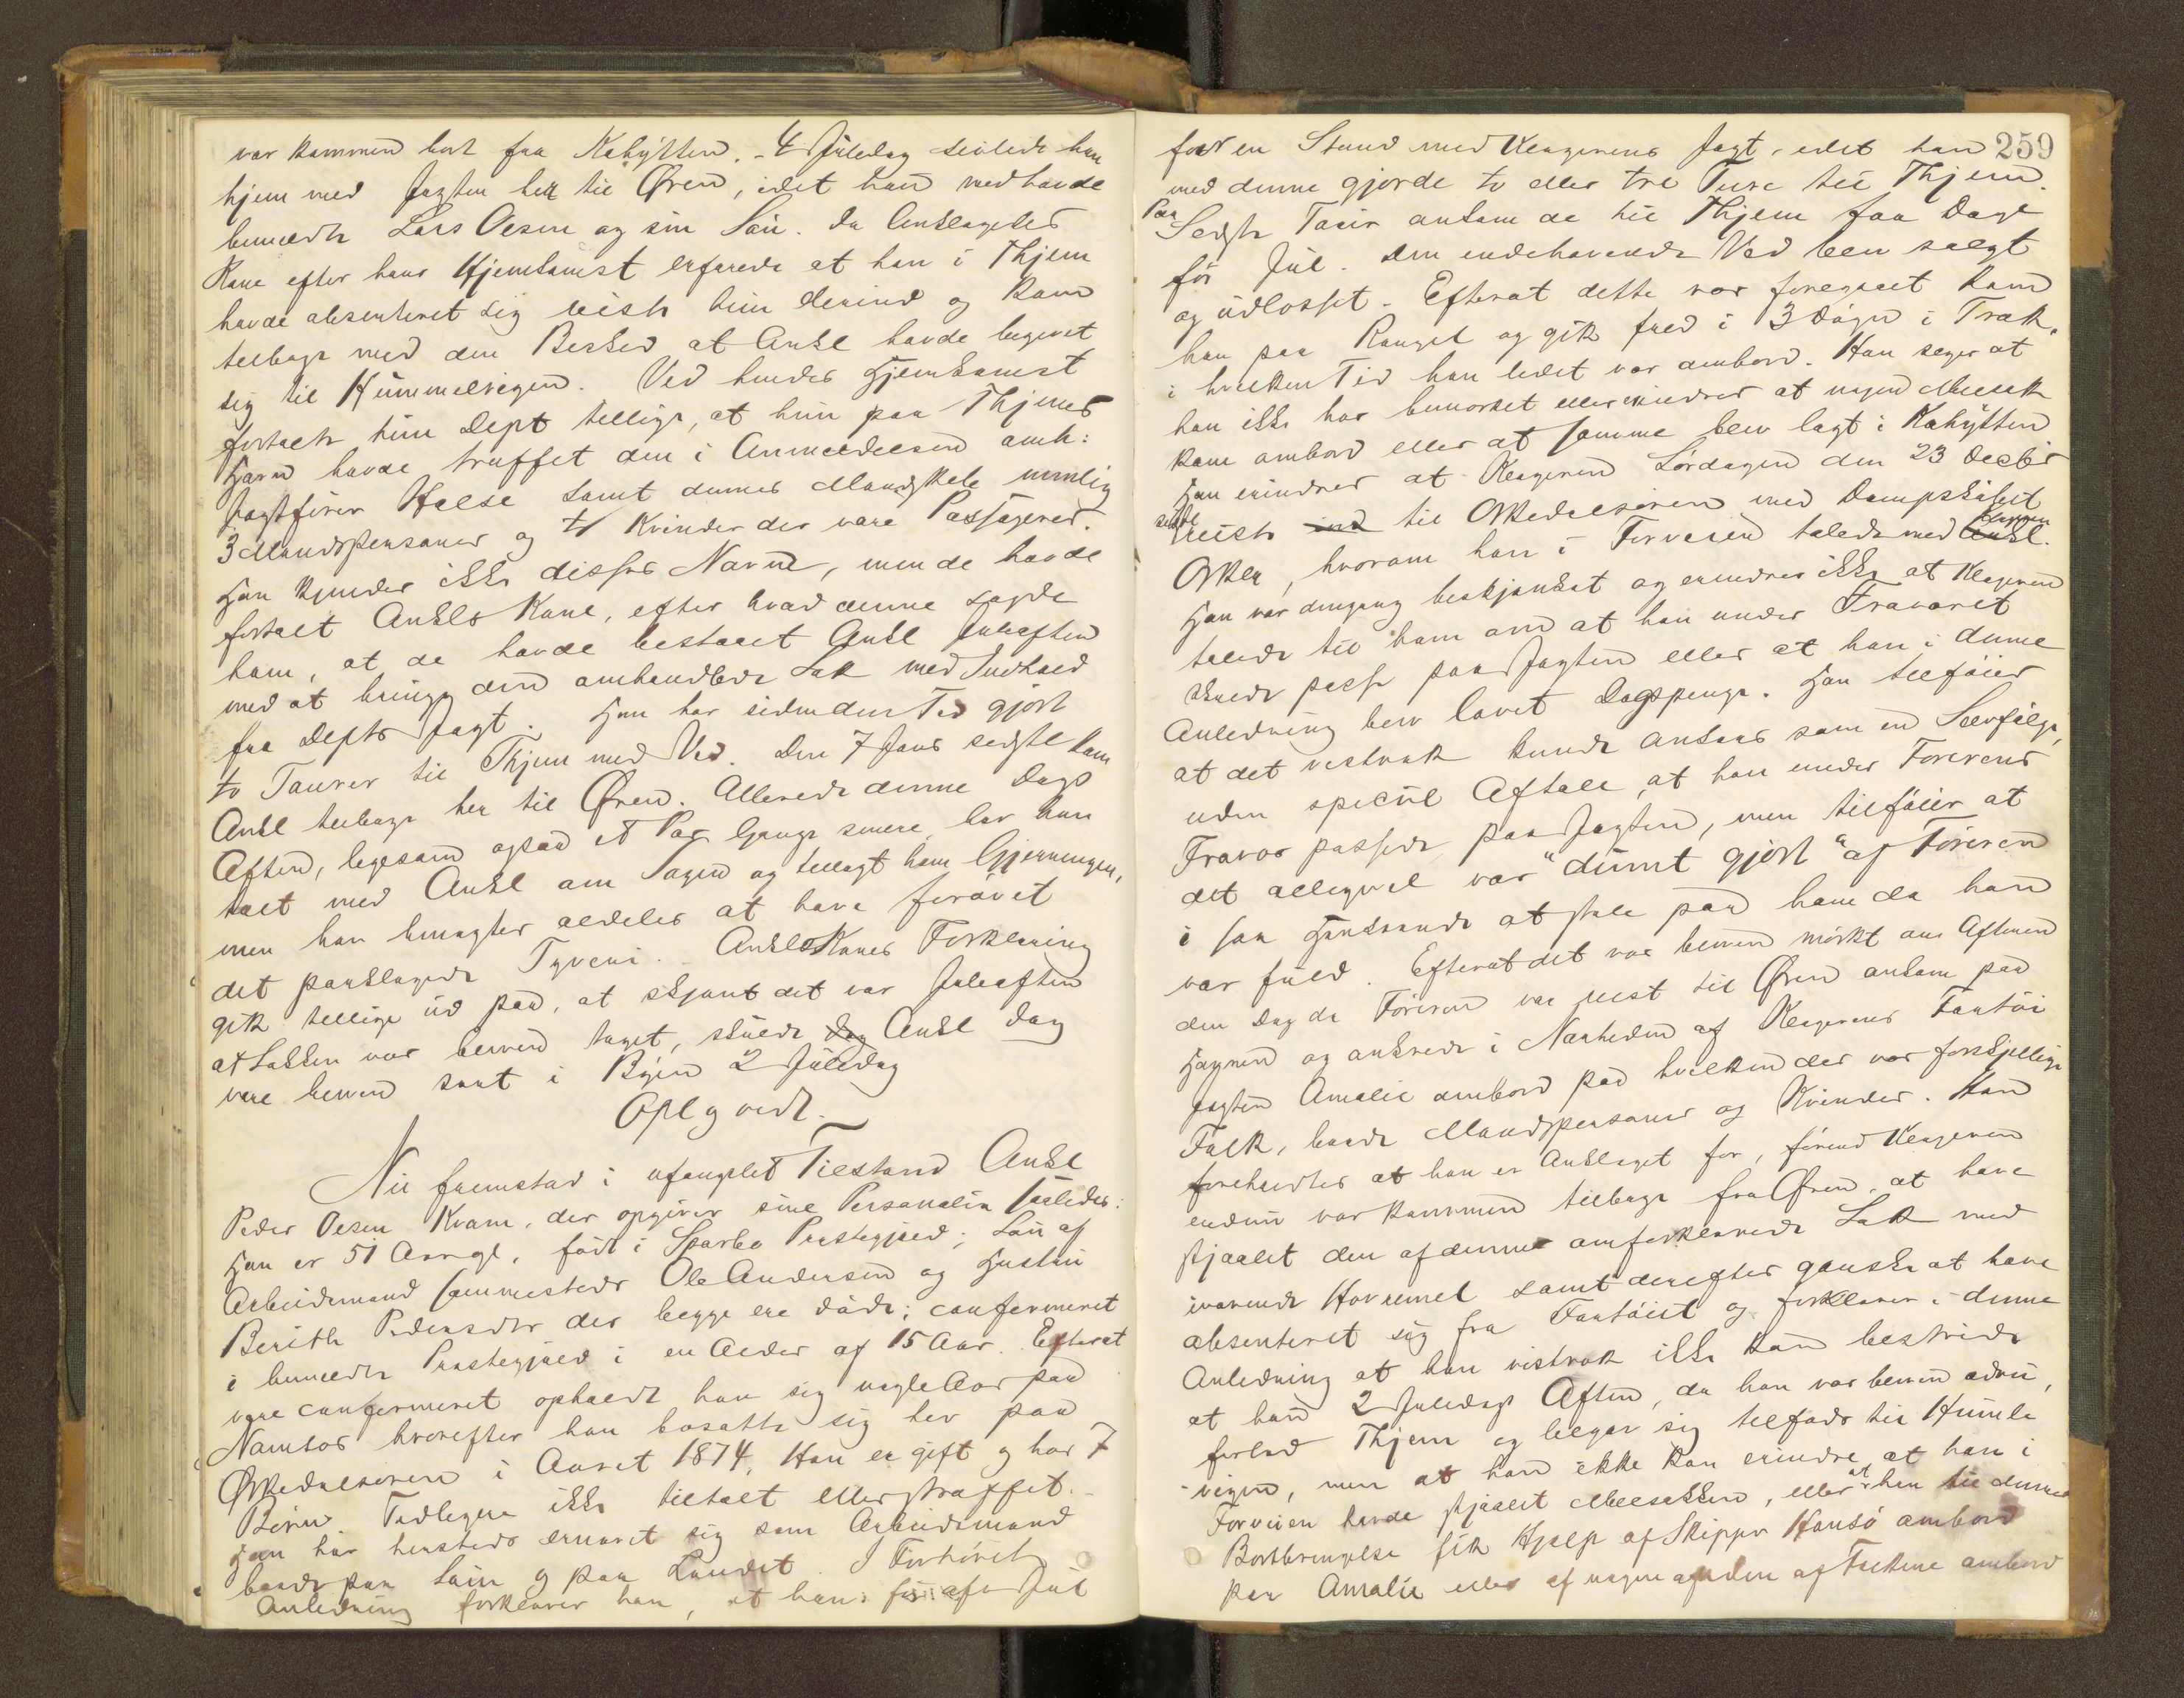 var kommen bort fra Kahytten. - 4 Juledag seilede han
hjem med Jagten her til Øren, idet han medhavde
bemeldte Lars Olsen og sin Søn. Da Anklagedes
Kone efter hans Hjemkomst erfarede at han i Thjem
havde absenteret sig reiste hun derind og kom
tilbage med den Besked at Ankl havde begivet
sig til Hummelvigen. Ved hendes Hjemkomst
fortalte hun Dept tillige, at hun paa Thjems
Havn havde truffet den i Anmeldelsen omh:
Jagtfører Halse samt dennes Mandskab nemlig
3 Mandspersoner og to Kvinder der vare Passagerer.
Han kjender ikke disses Navne, men de havde
fortalt Ankls Kone, efter hvad denne sagde
ham, at de havde bestaaet Ankl Juleaften
med at bringe den omhandlede Sæk med Indhold
fra Depts Jagt. Han har siden den Tid gjort
to Tourer til Thjem med Ved. Den 7 Janr sidste kom
Ankl tilbage her til Øren. Allerede denne Dags
Aften, ligesom ogsaa et Par Gange senere, har han
talt med Ankl om Sagen og tillagt ham Gjerningen,
men han benægter aldeles at have forøvet
det paaklagede Tyveri. - Ankls Kones Forklaring
gik tillige ud paa, at skjønt det var Juleaften
at Sækken var bleven taget, skulde Dag Ankl dog
være bleven seet i Byen 2 Juledag
Opl og vedt.
Nu fremstod i ufængslet Tilstand Ankl
Peder Olsen Kvam, der opgiver sine Personalia saaledes:
Han er 51 Aar gl, født i Sparbo Præstegjæld; Søn af
Arbeidsmand sammesteds Ole Andersen og Hustru
Berith Pedersdtr der begge ere døde; confirmeret
i bemeldte Præstegjæld i en Alder af 15 Aar. Efterat
være confirmeret opholdt han sig nogle Aar paa
Namsos hvorefter han bosatte sig her paa
Ørkedalsøren i Aaret 1874. Han er gift og har 7
Børn. Tidligere ikke tiltalt eller straffet. -
Han har hersteds ernæret sig som Arbeidsmand
baade paa Søen og paa Landet. I Forhørets
Anledning forklarer han, at han før Jul
259
for en Stund med Klagerens Jagt, idet han
med denne gjorde to eller tre Ture til Thjem.
Paa
Sidste Tour ankom de til Thjem faa Dage
før Jul. Den indehavende Ved blev solgt
og udlosset. Efterat dette var foregaaet kom
han paa Rangel og gik fuld i 3 Døgn i Træk,
i hvilken Tid han lidet var ombord. Han siger at
han ikke har bemærket eller erindrer at nogen Melsæk
kom ombord eller at samme blev lagt i Kahytten
Han erindrer at Klageren Lørdagen den 23 Decbr
sidste
reiste ind til Orkedalsøren med Dampskibet
denne
Orkla, hvorom han i Forveien talede med Ankl.
Han var dengang beskjænket og erindrer ikke at Klageren
talede til ham om at han under Fraværet
skulde passe paa Jagten eller at han i denne
Anledning blev lovet Dagspenge. Han tilføier
at det vistnok kunde ansees som en Selvfølge,
uden speciel Aftale, at han under Førerens
Fravær passede paa Jagten, men tilføier at
det alligevel var "dumt gjort" af Føreren
i saa Henseende at stole paa ham da han
var fuld. Efterat det var bleven mørkt om Aftenen
den Dag da Føreren var reist til Øren ankom paa
Havnen og ankrede i Nærheden af Klagerens Fartøi
Jagten Amalie ombord paa hvilken der var forskjellige
Folk, baade Mandspersoner og Kvinder. Han
foreholdtes at han er Anklaget for, førend Klageren
endnu var kommen tilbage fra Øren, at have
stjaalet den af denne omforklarede Sæk med
iværende Havremel samt derefter ganske at have
absenteret sig fra Fartøiet og forklarer i denne
Anledning at han vistnok ikke kan bestride
at han 2 Juledags Aften, da han var bleven ædru,
forlod Thjem og begav sig tilfods til Humle
vigen, men at han ikke kan erindre, at han i
Forveien havde stjaalet Melsækken, eller at han til dennes
Bortbringelse fik Hjælp af Skipper Hansø ombord
paa Amalie eller af nogen anden af Folkene ombord